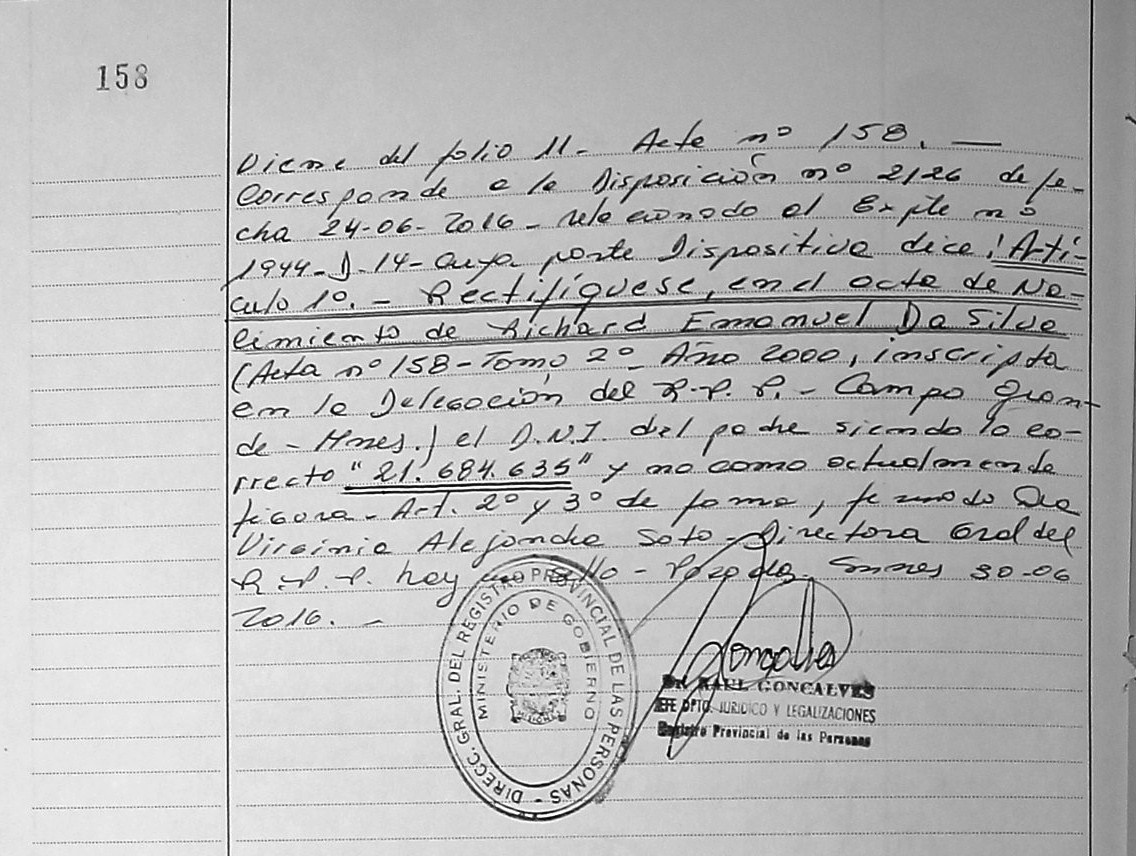 158
Viene del folio 11.- Acta nº 158. —
Corresponde a la Disposición nº 2126 de fe-
cha 24-06-2016 - relacionado al Expte nº
1944-D-14- cuya parte Dispositiva dice: Artí-
culo 1º.- Rectifíquese, en el acta de Na-
cimiento de Richard Emanuel Da Silva
(Acta nº 158 - Tomo 2º - Año 2000, inscripta
en la Delegación del R.P.P. - Campo Gran-
de - Mnes.) el D.N.I. del padre siendo lo co-
rrecto "21.684.635" y no como actualmente
figura - Art. 2º y 3º de forma, firmado Dra
Virginia Alejandra Soto - Directora Gral del
R.P.P. hay un sello - Posadas, Mnes 30-06
2016. -
DIRECC. GRAL. DEL REGISTRO PROVINCIAL DE LAS PERSONAS -
MINISTERIO DE GOBIERNO
Dr. RAUL GONCALVES
JEFE DPTO. JURIDICO Y LEGALIZACIONES
Registro Provincial de las Personas